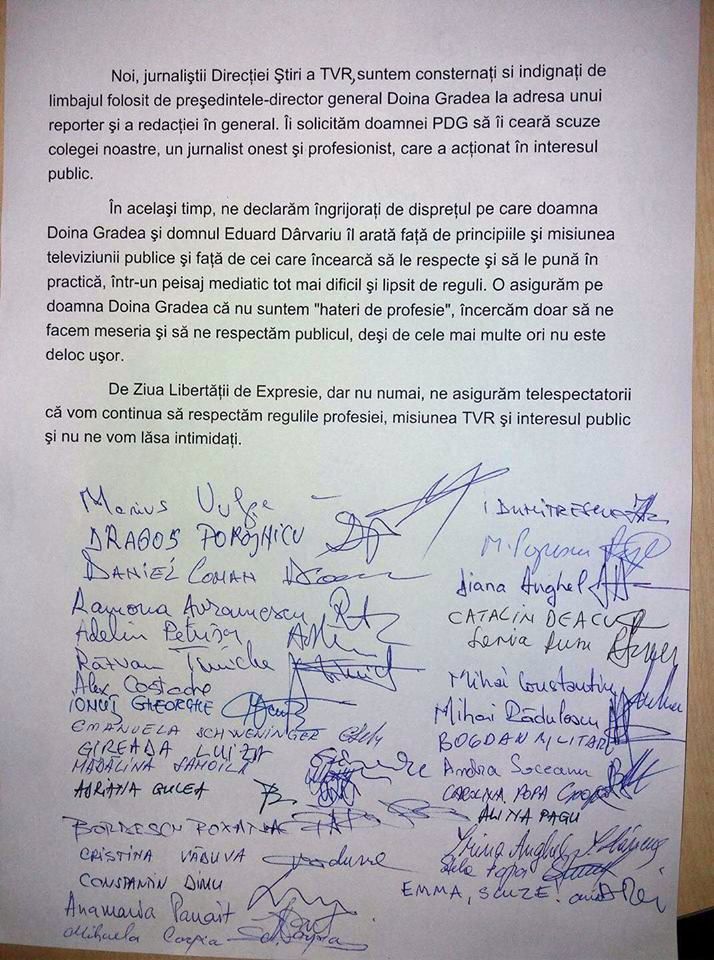 Noi, jurnaliştii Direcţiei Ştiri a TVR, suntem consternaţi si indignaţi de
limbajul folosit de preşedintele-director general Doina Gradea la adresa unui
reporter şi a redacţiei în general. Îi solicităm doamnei PDG să îi ceară scuze
colegei noastre, un jurnalist onest şi profesionist, care a acţionat în interesul
public.
În acelaşi timp, ne declarăm îngrijoraţi de dispreţul pe care doamna
Doina Gradea şi domnul Eduard Dârvariu îl arată faţă de principiile şi misiunea
televiziunii publice şi faţă de cei care încearcă să le respecte şi să le pună în
practică, într-un peisaj mediatic tot mai dificil şi lipsit de reguli. O asigurăm pe
doamna Doina Gradea că nu suntem "hateri de profesie", încercăm doar să ne
facem meseria şi să ne respectăm publicul, deşi de cele mai multe ori nu este
deloc uşor.
De Ziua Libertăţii de Expresie, dar nu numai, ne asigurăm telespectatorii
că vom continua să respectăm regulile profesiei, misiunea TVR şi interesul public
şi nu ne vom lăsa intimidaţi.
Marius Vulpe
DRAGOŞ POROJNICU
DANIEL COMAN
Ramona Avramescu
Adelin Petrişor
Răzvan
Alex Costache
IONUŢ GHEORGHE
EMANUELA SCHWENINGER
GIREADA LUIZA
MĂDĂLINA SAMOILĂ
ADRIANA GULEA
BORDESCU ROXANA
CRISTINA VĂDUVA
CONSTANTIN DINU
Anamaria Panait
Mihaela
I DUMITRESCU
M. Popescu
Diana Anghel
CATALIN DEACU
Rusu
Mihai Constantin
Mihai Rădulescu
BOGDAN MILITARU
Andra Soceanu
CAROLINA POPA
ALINA PAGU
Irina Anghel
Popa
EMMA, SCUZE.